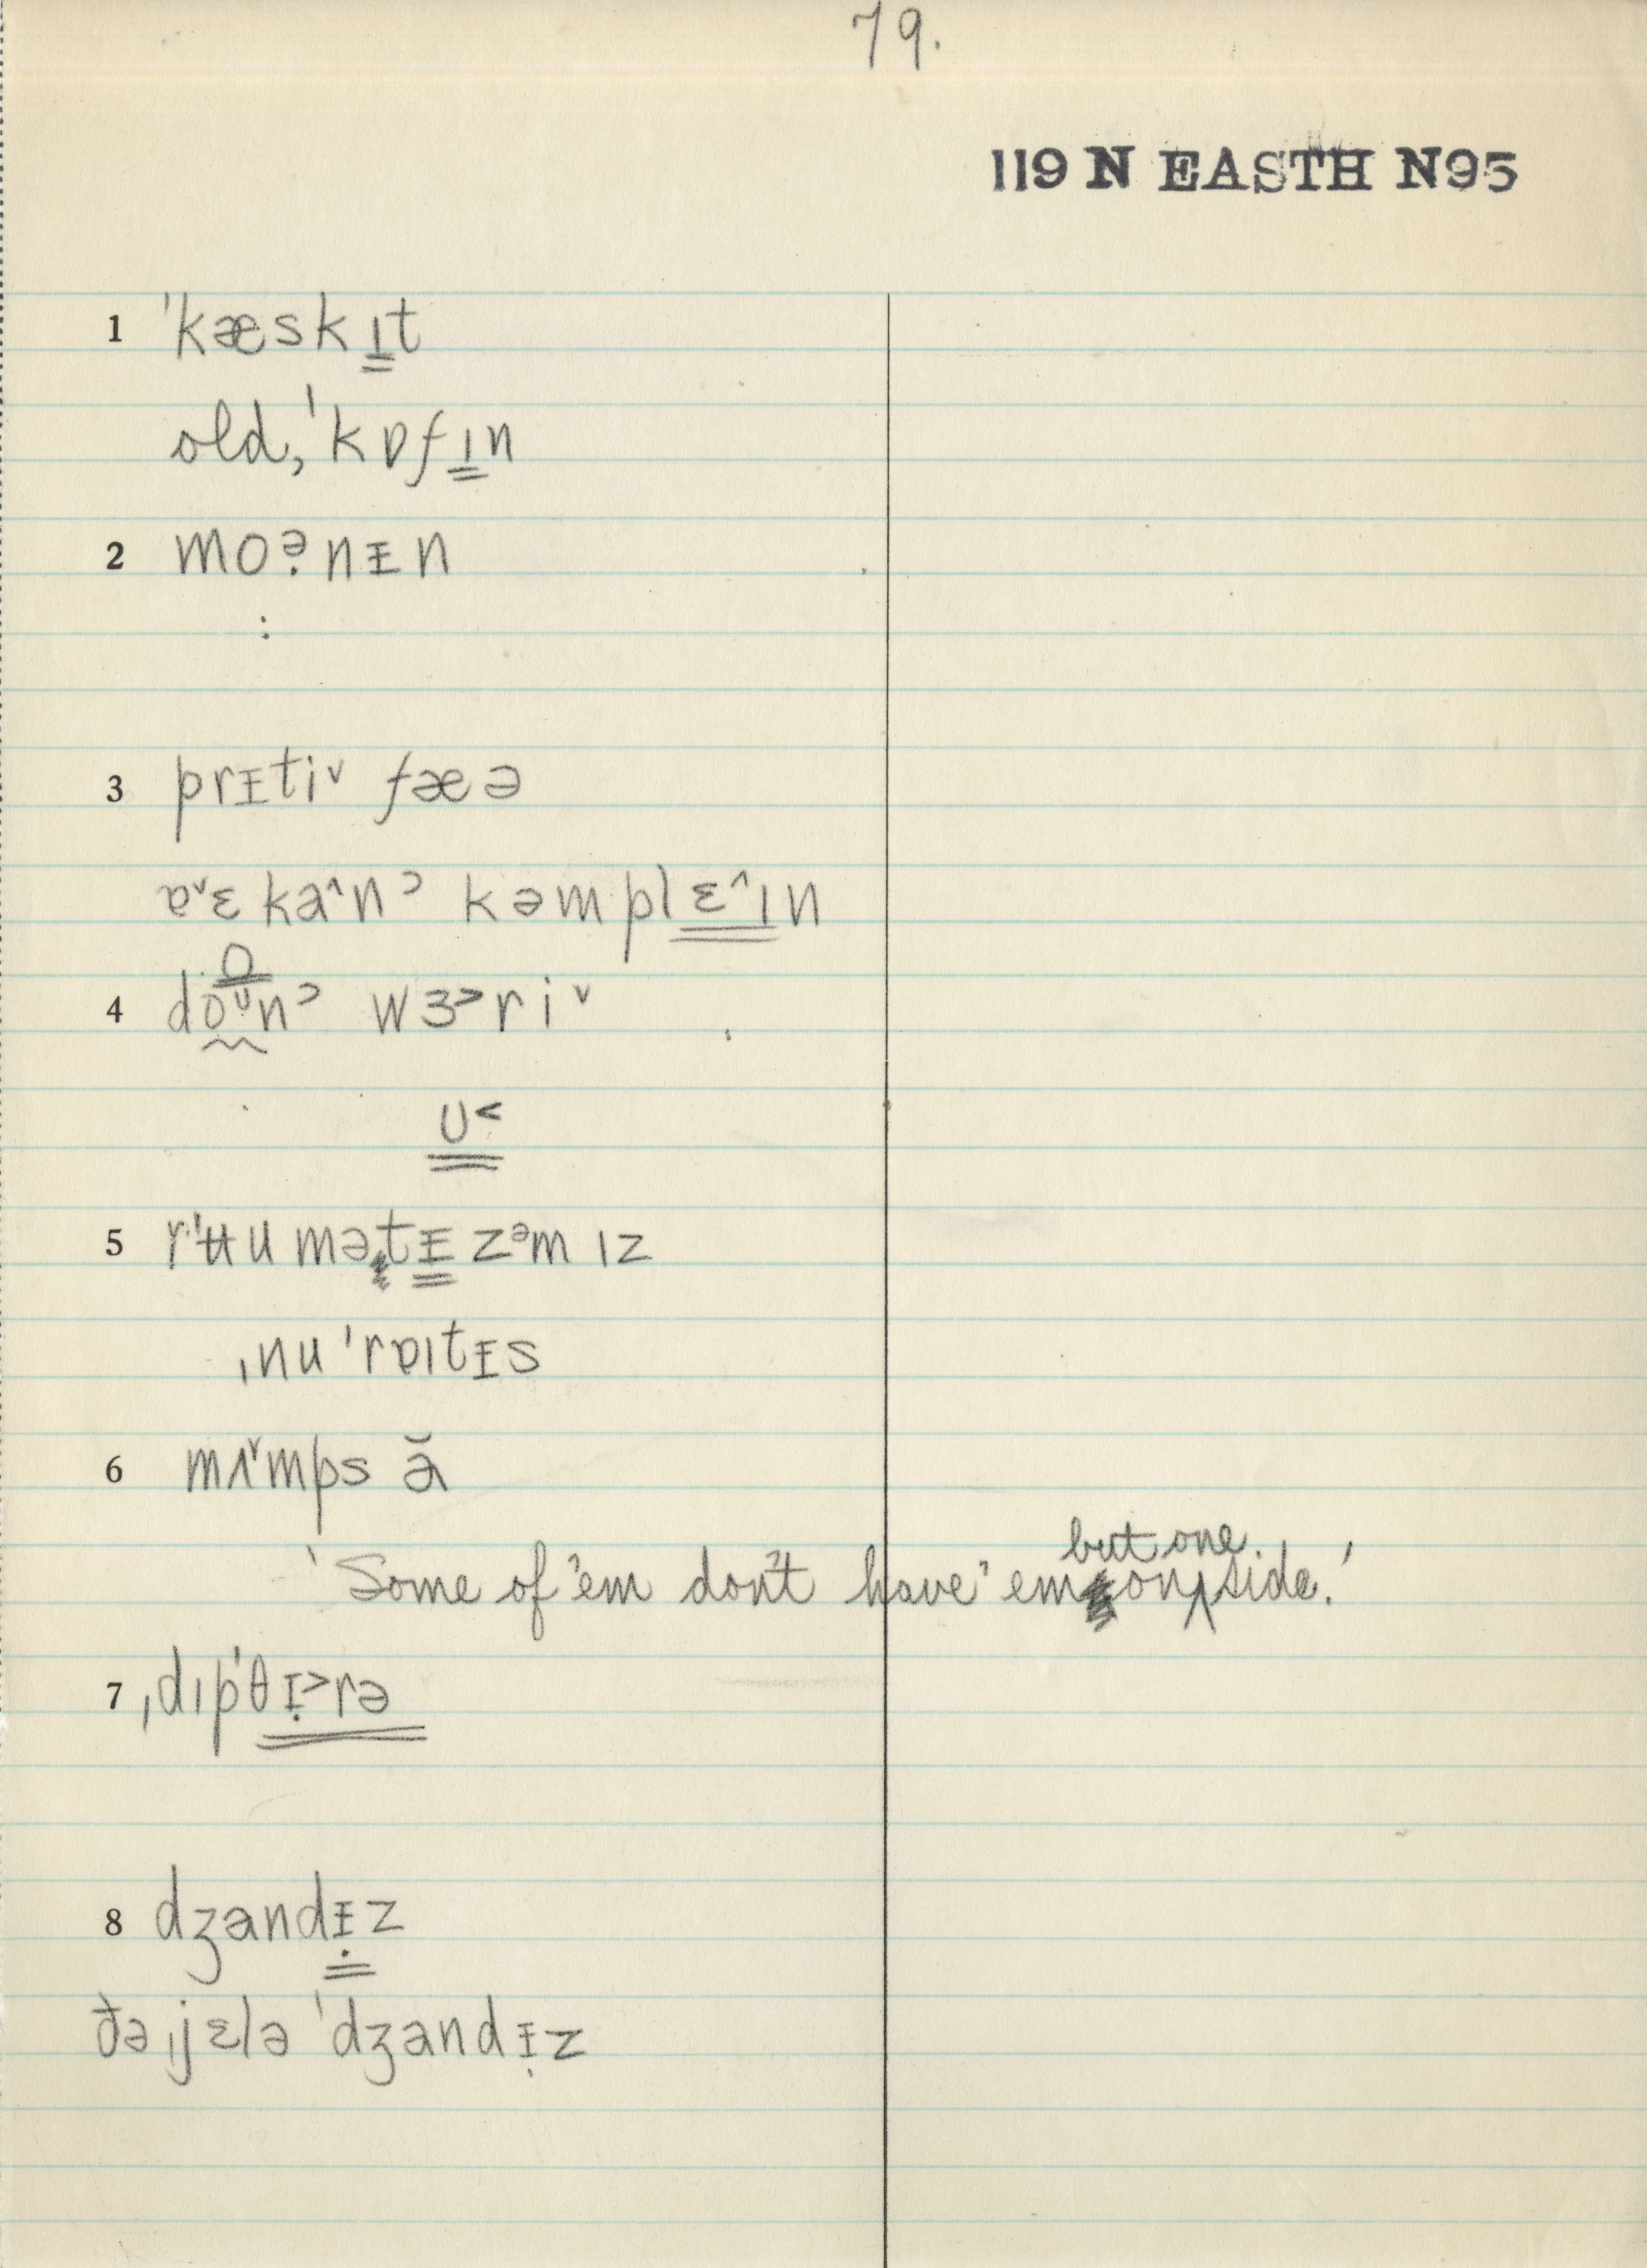 79.
119 N EASTH N95
1 ˈkæskɪt
old, ˈkɒfɪn
2 moə̣nᵻn
:
3 prᵻtiˇ fæə
ɐˇɛ kaˆnˀ kəmplɛˆɪn
4 doʊnˀ wɜ˃riˇ
ʊ˂
5 rˈʉu mətᵻzᵊm ɪz
ˌnuˈrɐɪtᵻs
6 mʌˇmps ə̆
'Some of 'em don't have 'em on but one side.'
7 ˌdɪpˈθɪ̣˃rə
8 dʒandᵻ̣z
ðə ˌjɛlə ˈdʒandᵻ̣z